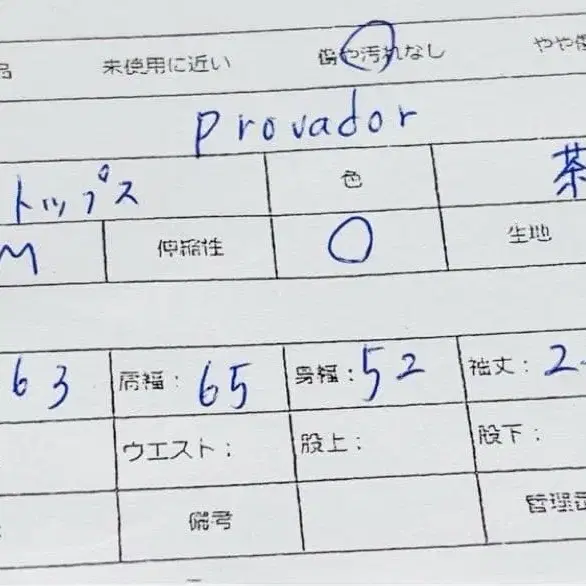 品 未使用に近い 傷や汚れなし やや傷
provador
トップス 色 茶
M 伸縮性 ○ 生地
63 肩幅: 65 身幅: 52 袖丈: 2
ウエスト: 股上: 股下:
備考 管理番